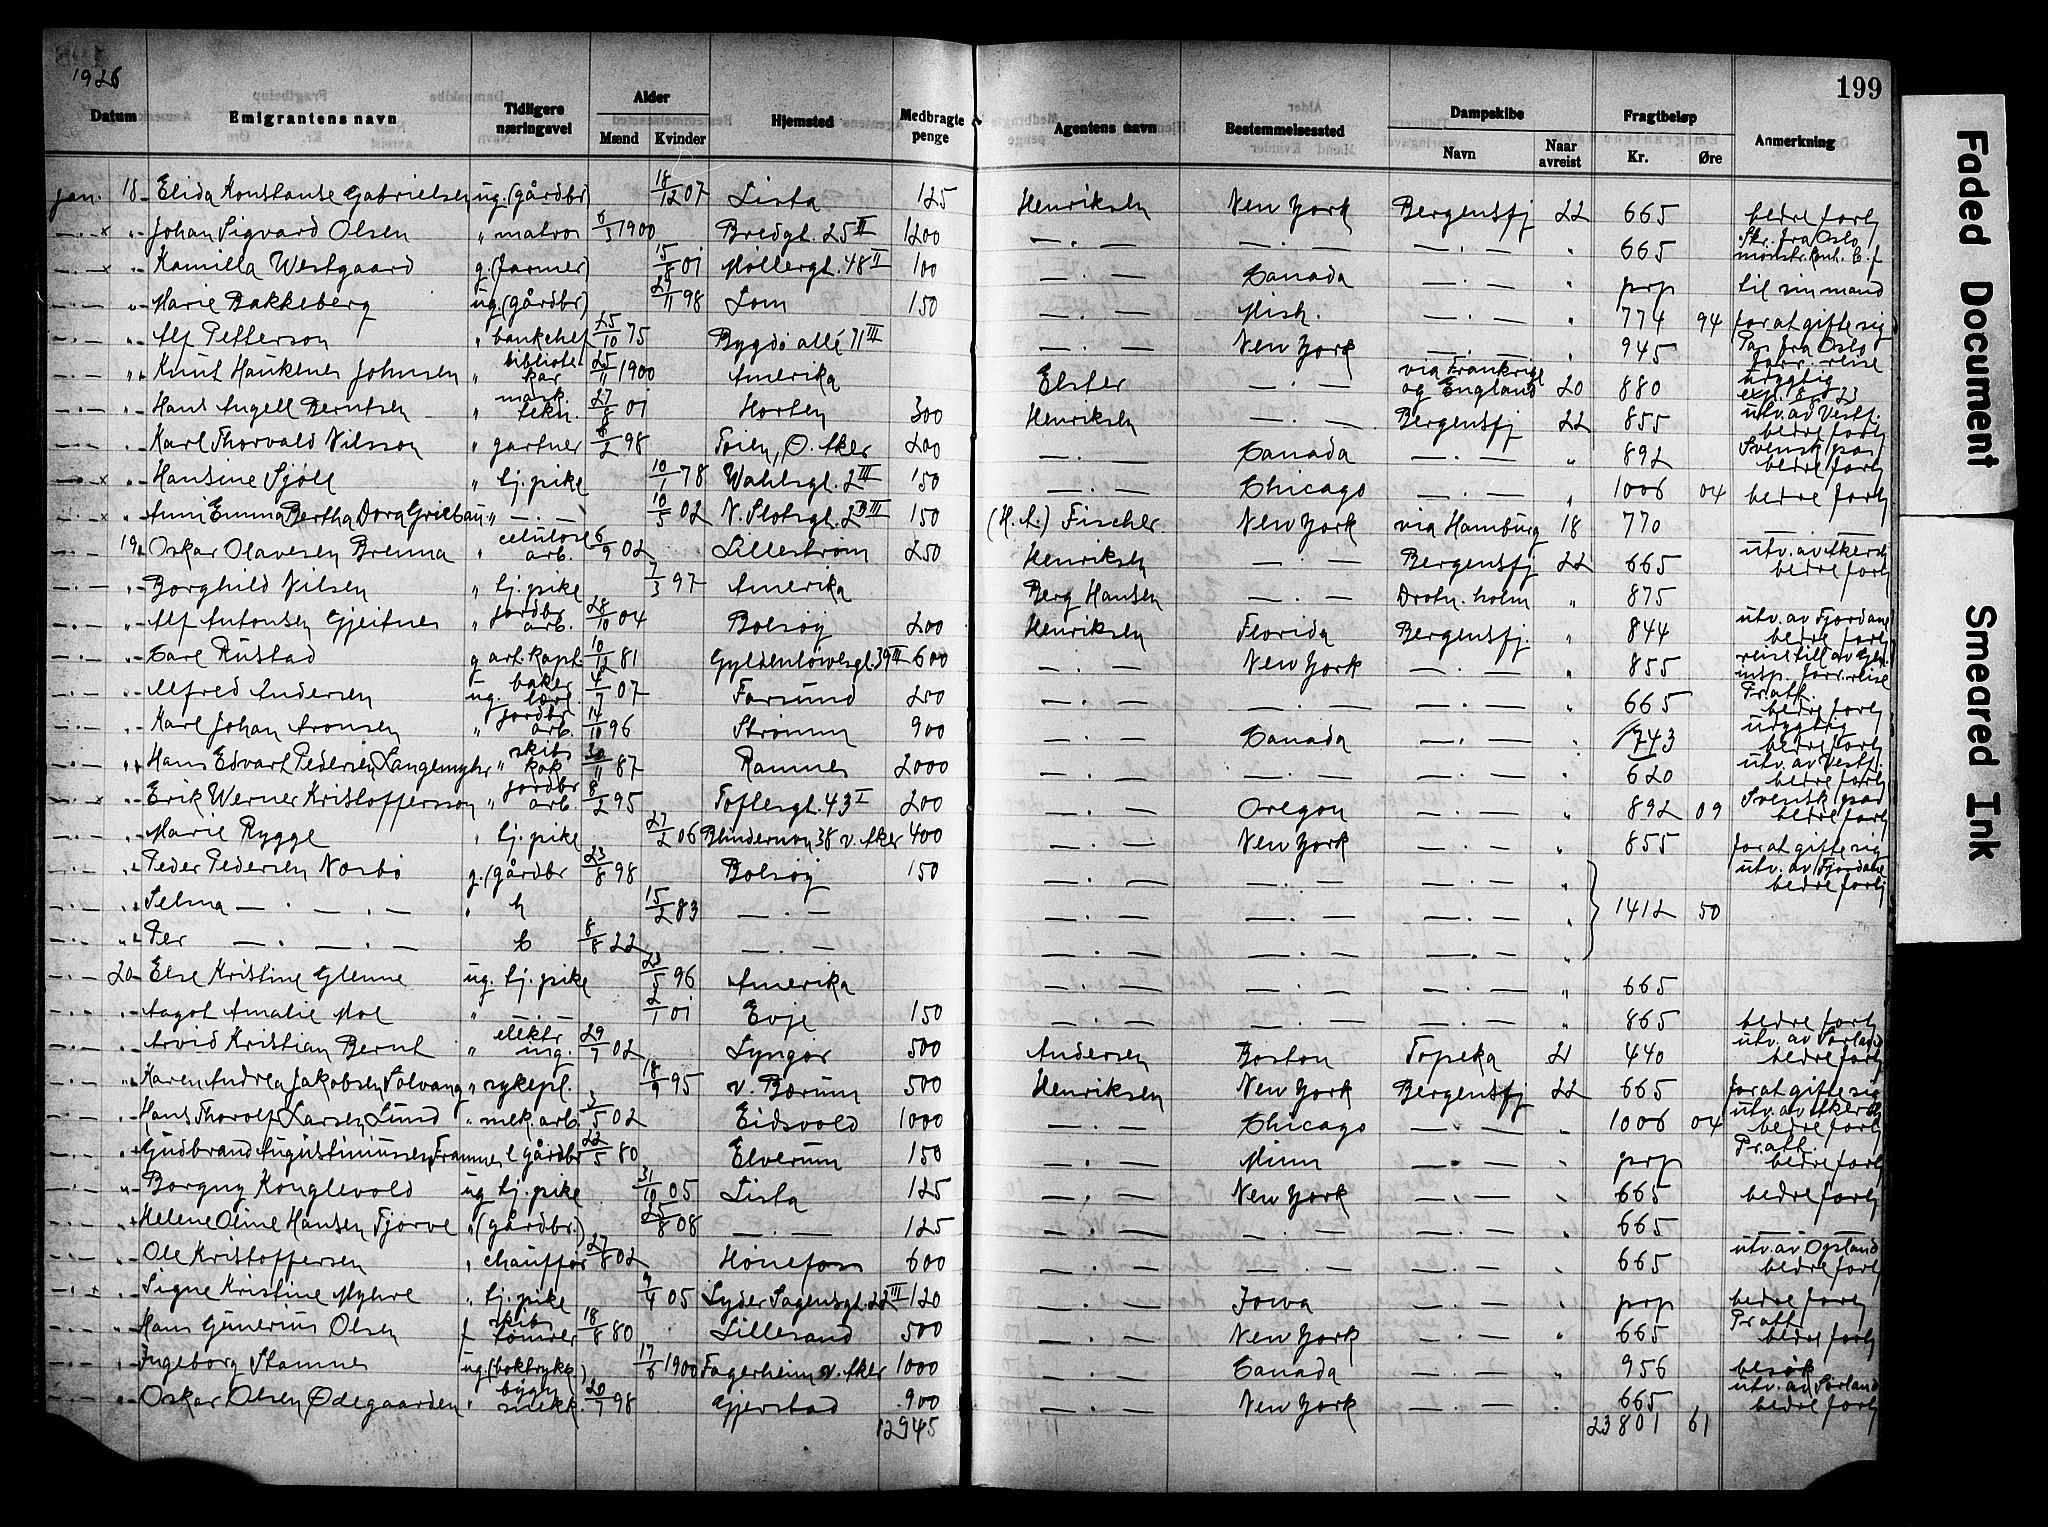 1926
199
Datum Emigrantens navn Tidligere næringsvei Alder Mænd Kvinder Hjemsted Medbragte penge Agentens navn Bestemmelsessted Dampskibe Navn Naar avreist Fragtbeløp Kr. Øre Anmerkning
jan. 18 Elida Konstanse Gabrielsen ug. (gårdbr) 18/12 07 Lista 125 Henriksen New York Bergensfj 22 665 bedre forhj
" Johan Sigvard Olsen " matros 6/3 1900 Bredgt. 25 II 1200 — . — — . — — . — " 665 Skr. fra Oslo mønstr.
" Kamilla Westgaard g. (farmer) 15/8 01 Møllergt. 48 II 100 — . — Canada — . — " prp til sin mand
" Marie Bakkeberg ug. (gårdbr) 29/11 98 Lom 150 — . — Mish. — . — " 774 94 for at gifte sig
" Alf Petterson " bankchef 25/10 75 Bygdø allé 71 III — . — New York — . — " 945 Pas fra Oslo forr. reise
" Knut Haukenes Johnsen " bibliotekar 25/11 1900 Amerika Elster — . — via Frankrige og England 20 880 udygtig
" Hans Angell Berntsen " mask. tekn. 27/8 01 Horten 300 Henriksen — . — Bergensfj 22 855 utv. av Vestf. bedre forhj
" Karl Thorvald Nilsson " gartner 8/2 98 Tøien, Ø. Aker 200 — . — Canada — . — " 892 Svensk pas bedre forhj
" Hansine Sjøll " tj. pike 10/1 78 Wahlsgt. 2 III 150 — . — Chicago — . — " 1006 04 bedre forhj
" Anni Emma Bertha Dora Griebau " — . — 10/5 02 N. Slotsgt. 23 III 150 (H.A.) Fischer New York via Hamburg 18 770 —
19 Oskar Olavesen Brenna " celulose arb. 6/9 02 Lillestrøm 250 Henriksen — . — Bergensfj 22 665 utv. av Akersh bedre forhj
" Borghild Nilsen " tj. pike 7/3 97 Amerika Berg Hansen — . — Drotn. holm " 875
" Alf Antonsen Gjeitnes " jordbr arb. 28/10 04 Bolsøy 200 Henriksen Florida Bergensfj. " 844 utv. av Fjordane bedre forh
" Carl Rustad g art. kapt. 10/12 81 Gyldenløvesgt. 39 III 600 — . — New York — . — " 855 reisetill av insp. forr. reise
" Alfred Andersen ug. baker lærl. 4/7 07 Farsund 200 — . — — . — — . — " 665 Pr. att. bedre forhj
" Karl Johan Aronsen " jordbr arb. 14/10 96 Strømm 900 — . — Canada — . — " 743 udygtig bedre forhj
" Hans Edvart Pedersen Langemyhr " skibs kok 30/11 87 Ramnes 2000 — . — — . — — . — " 620 utv. av Vestf. bedre forhj
" Erik Werner Kristoffersson " jordbr arb. 8/2 95 Toftesgt. 43 I 200 — . — Oregon — . — " 892 09 Svensk pas bedre forhj
" Marie Rygge " tj. pike 27/2 06 Blindernvn 38 v. Aker 400 — . — New York — . — " 855 for at gifte sig
" Peder Pedersen Næsbø g. (gårdbr 23/8 98 Bolsøy 150 — . — — . — — . — " utv. av Fjordane bedre forhj
" Selma — . — . — " h 15/2 83 — . — — . — — . — — . — " 1412 50
" Per — . — . — b 8/8 22 — . — — . — — . — — . — "
20 Else Kristine Glenne ug. tj. pike 23/5 96 Amerika — . — — . — — . — " 665
" Aagot Amalie Moe " — . — 2/1 01 Evje 150 — . — — . — — . — " 865 bedre forhj
" Arvid Kristian Bernt " elektr ing. 29/7 02 Lyngør 500 Andersen Boston Topeka 21 440 utv. av Sørland bedre forhj
" Karen Andrea Jakobsen Solvang " sykepl. 18/9 95 v. Bærum 500 Henriksen New York Bergensfj 22 665 for at gifte sig
" Hans Thorolf Larsen Lund " mek. arb. 3/5 02 Eidsvold 1000 — . — Chicago — . — " 1006 04 utv. av Akersh bedre forhj
" Gudbrand Augustinussen Framnes l gårdbr 22/5 80 Elverum 150 — . — Minn — . — " prp Pr. att. bedre forhj
" Borgny Konglevold ug tj. pike 31/10 05 Lista 125 — . — New York — . — " 665 bedre forhj
" Helene Oline Hansen Tjørve " (gårdbr.) 25/8 08 — . — 125 — . — — . — — . — " 665
" Ole Kristoffersen " chauffør 27/8 02 Hønefoss 600 — . — — . — — . — " 665 utv. av Opsland bedre forhj
" Signe Kristine Myhre " tj. pike 9/4 05 Lyder Sagensgt. 22 III 120 — . — Jowa — . — " prp bedre forhj
" Hans Gunerius Olsen f skibs tømrer 18/8 80 Lillesand 500 — . — New York — . — " 665 Pr att bedre forhj
" Ingeborg Stamnes ug. (boktrykk) 17/6 1900 Fagerheim v. Aker 1000 — . — Canada — . — " 956 besøk
" Oskar Olsen Ødegaarden " bygn snekk. 20/7 98 Gjerstad 900 — . — New York — . — " 665 utv. av Sørland bedre forhj
12945 23801 61
Faded Document
Smeared Ink